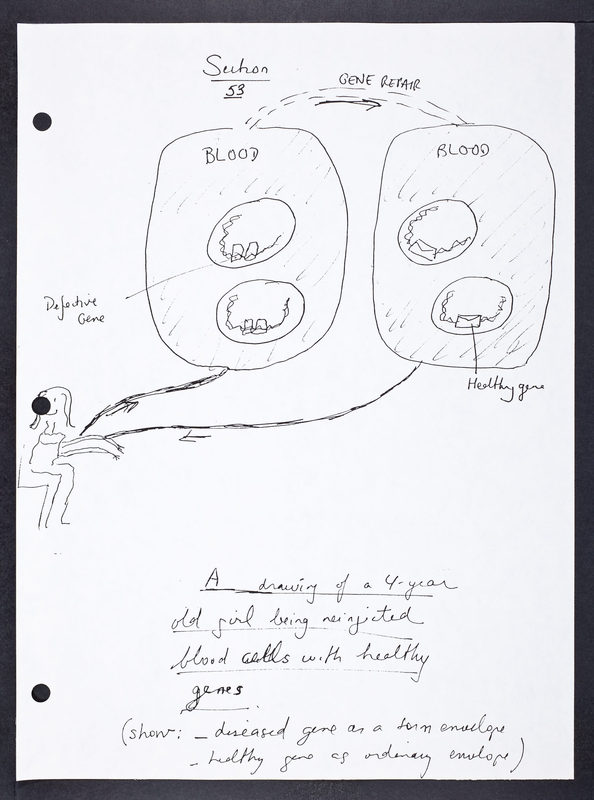 Section
53
GENE REPAIR
BLOOD
BLOOD
Defective
Gene
Healthy gene
A drawing of a 4-year
old girl being reinjected
blood cells with healthy
genes
(show: - diseased gene as a torn envelope
- healthy gene as ordinary envelope)